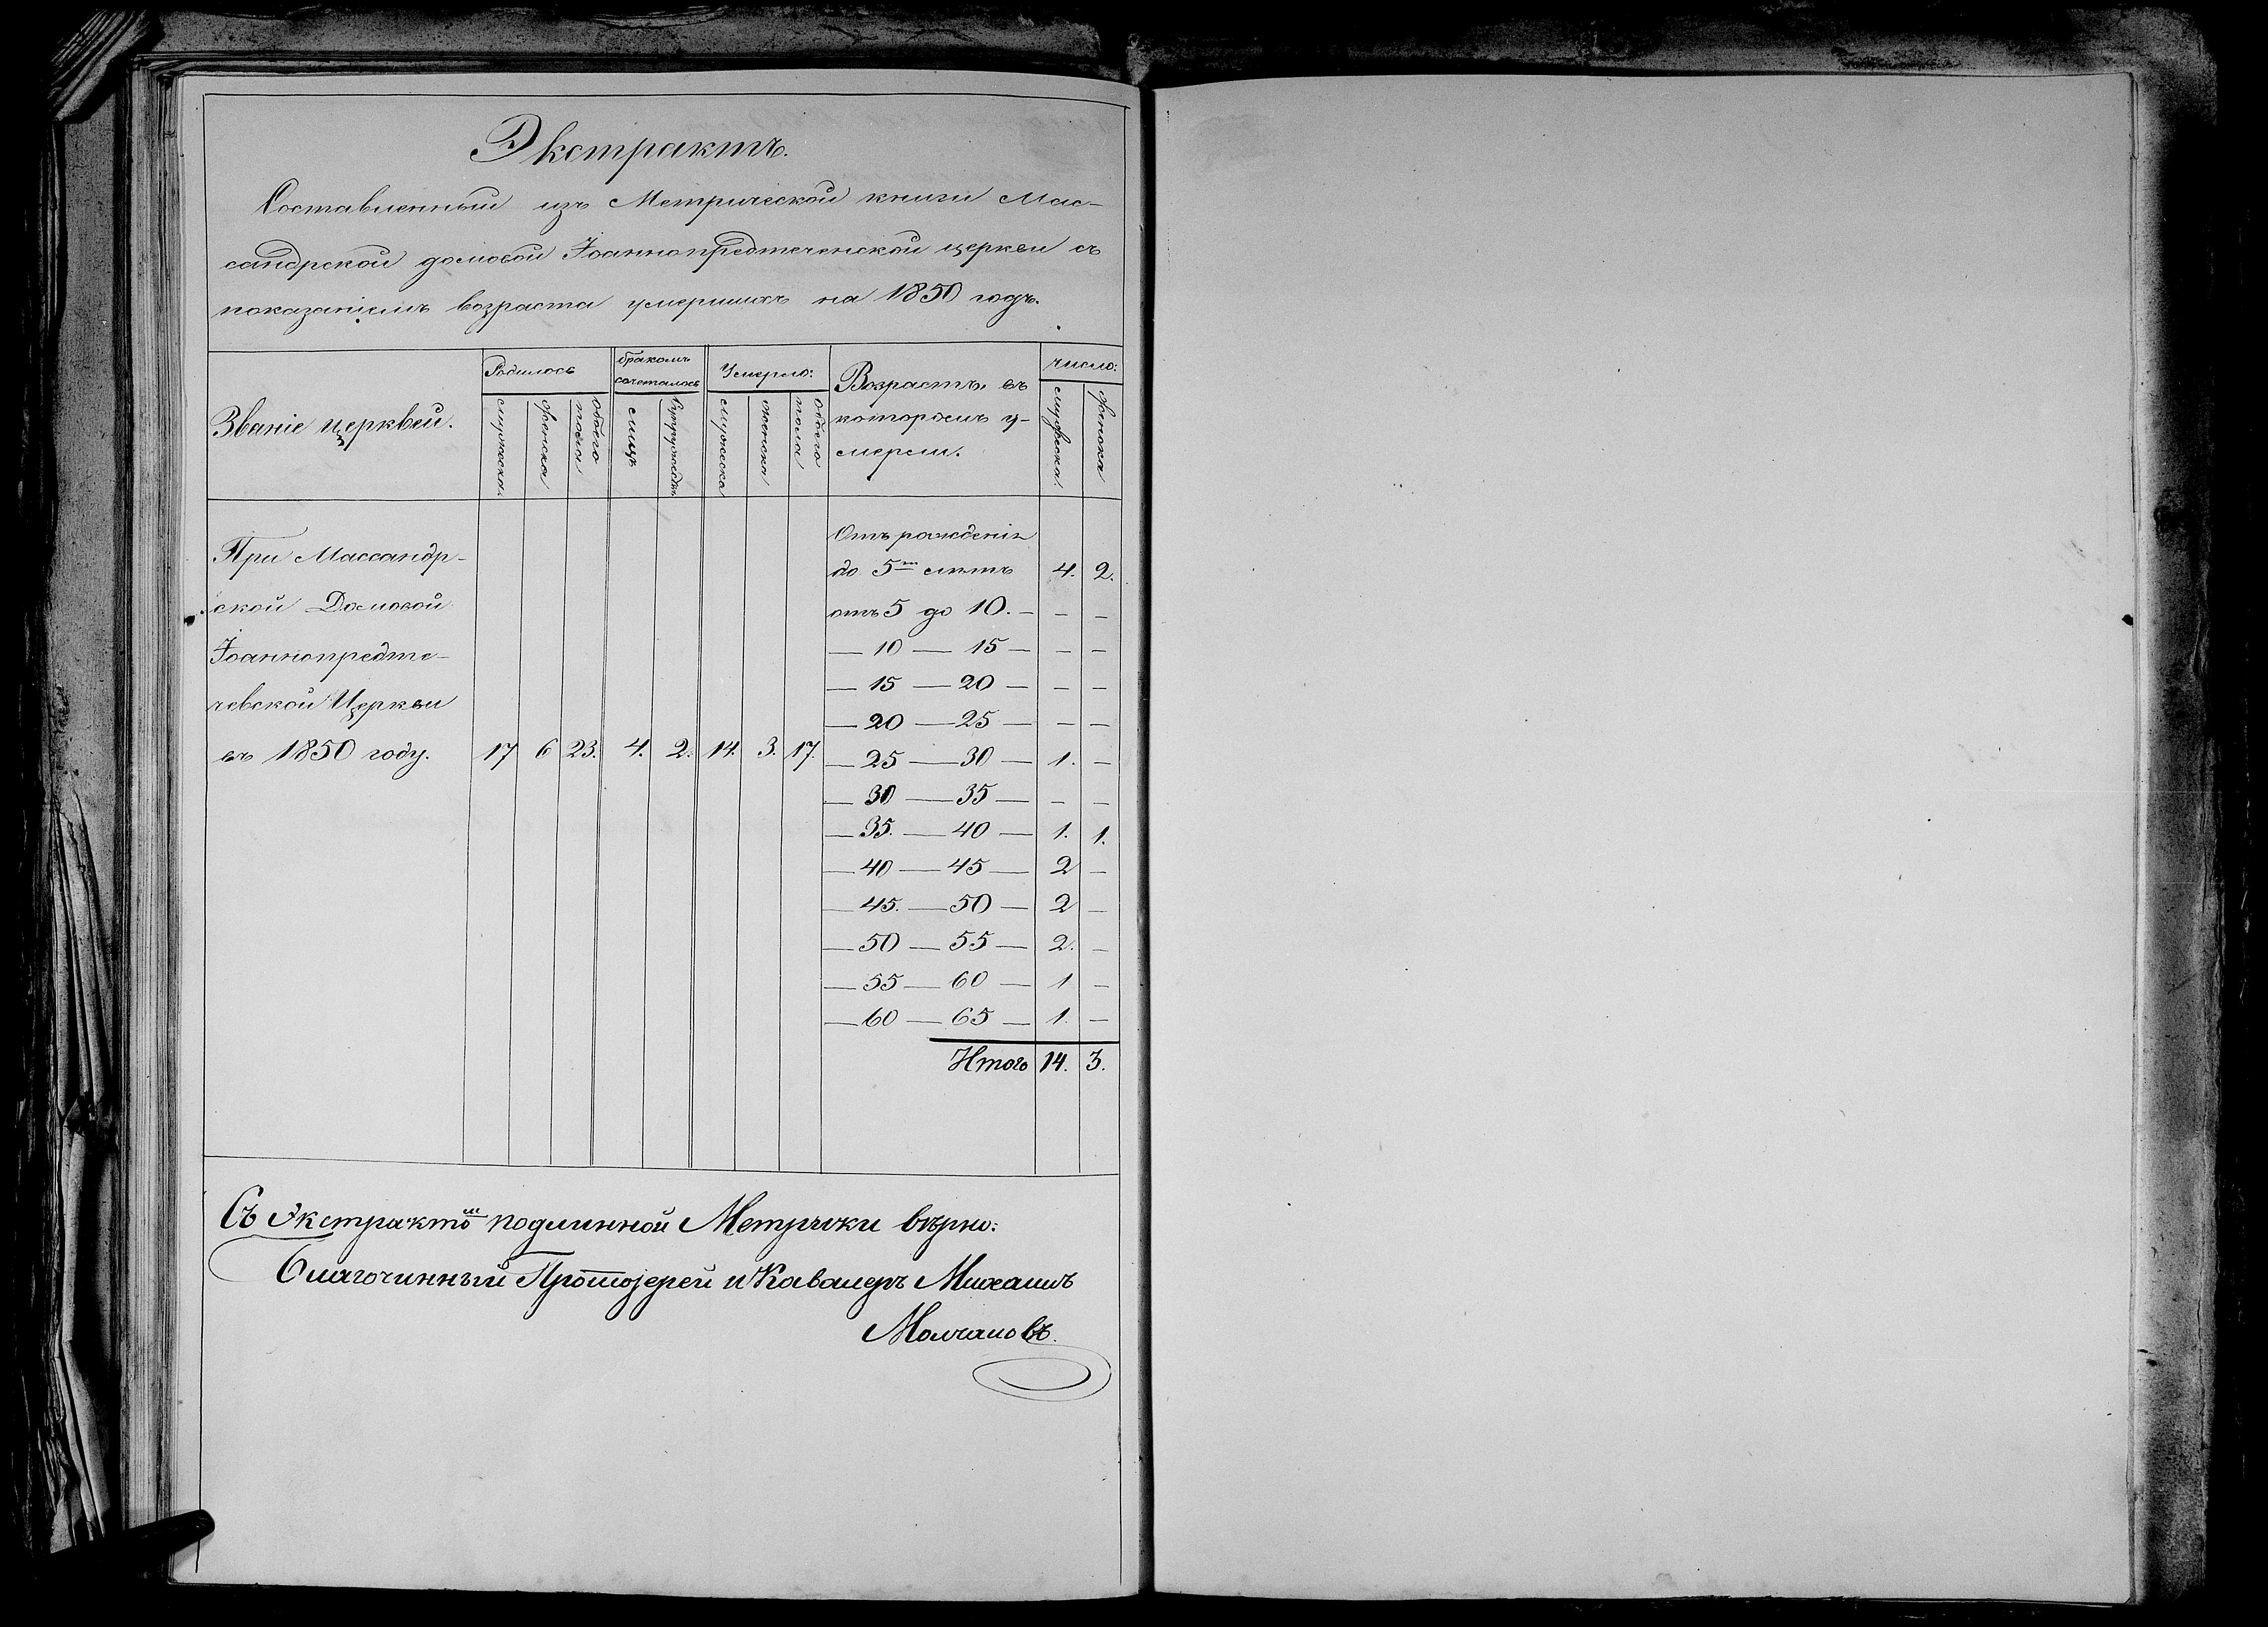 Экстрактъ.
Составленный изъ Метрической книги Мас-
сандрской домовой Іоаннопредтеченской церкви съ
показаніемъ возраста умершихъ на 1850 годъ.
Званіе церквей.
Родилось
мужеска.
женска
обоего пола
бракомъ сочеталось
лицъ
супружествъ
Умерло:
мужеска
женска
обоего пола
Возрастъ въ
которомъ у-
мерли.
число:
мужеска.
женска
При Массандр-
ской Домовой
Іоаннопредте-
чевской Церкви
въ 1850 году. 17 6 23. 4. 2. 14. 3. 17.
Отъ рожденія
до 5ти лѣтъ 4. 2.
отъ 5 до 10. — — —
— 10 — 15 — — —
— 15 — 20 — — —
— 20 — 25 — — —
— 25 — 30 — 1. —
— 30 — 35 — — —
— 35. — 40 — 1. 1.
— 40 — 45 — 2 —
— 45. — 50 — 2 —
— 50 — 55 — 2. —
— 55 — 60 — 1 —
— 60 — 65 — 1. —
Итого 14. 3.
Съ Экстрактомъ подлинной Метрики вѣрно:
Благочинный Протоіерей и Кавалеръ Михаилъ
Молчановъ.